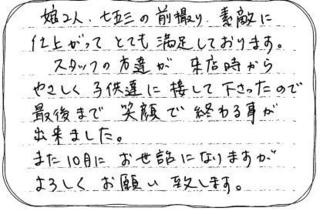 娘2人、七五三の前撮り、素敵に
仕上がってとても満足しております。
スタッフの方達が来店時から
やさしく子供達に接して下さったので
最後まで笑顔で終わる事が
出来ました。
また10月にお世話になりますが
よろしくお願い致します。